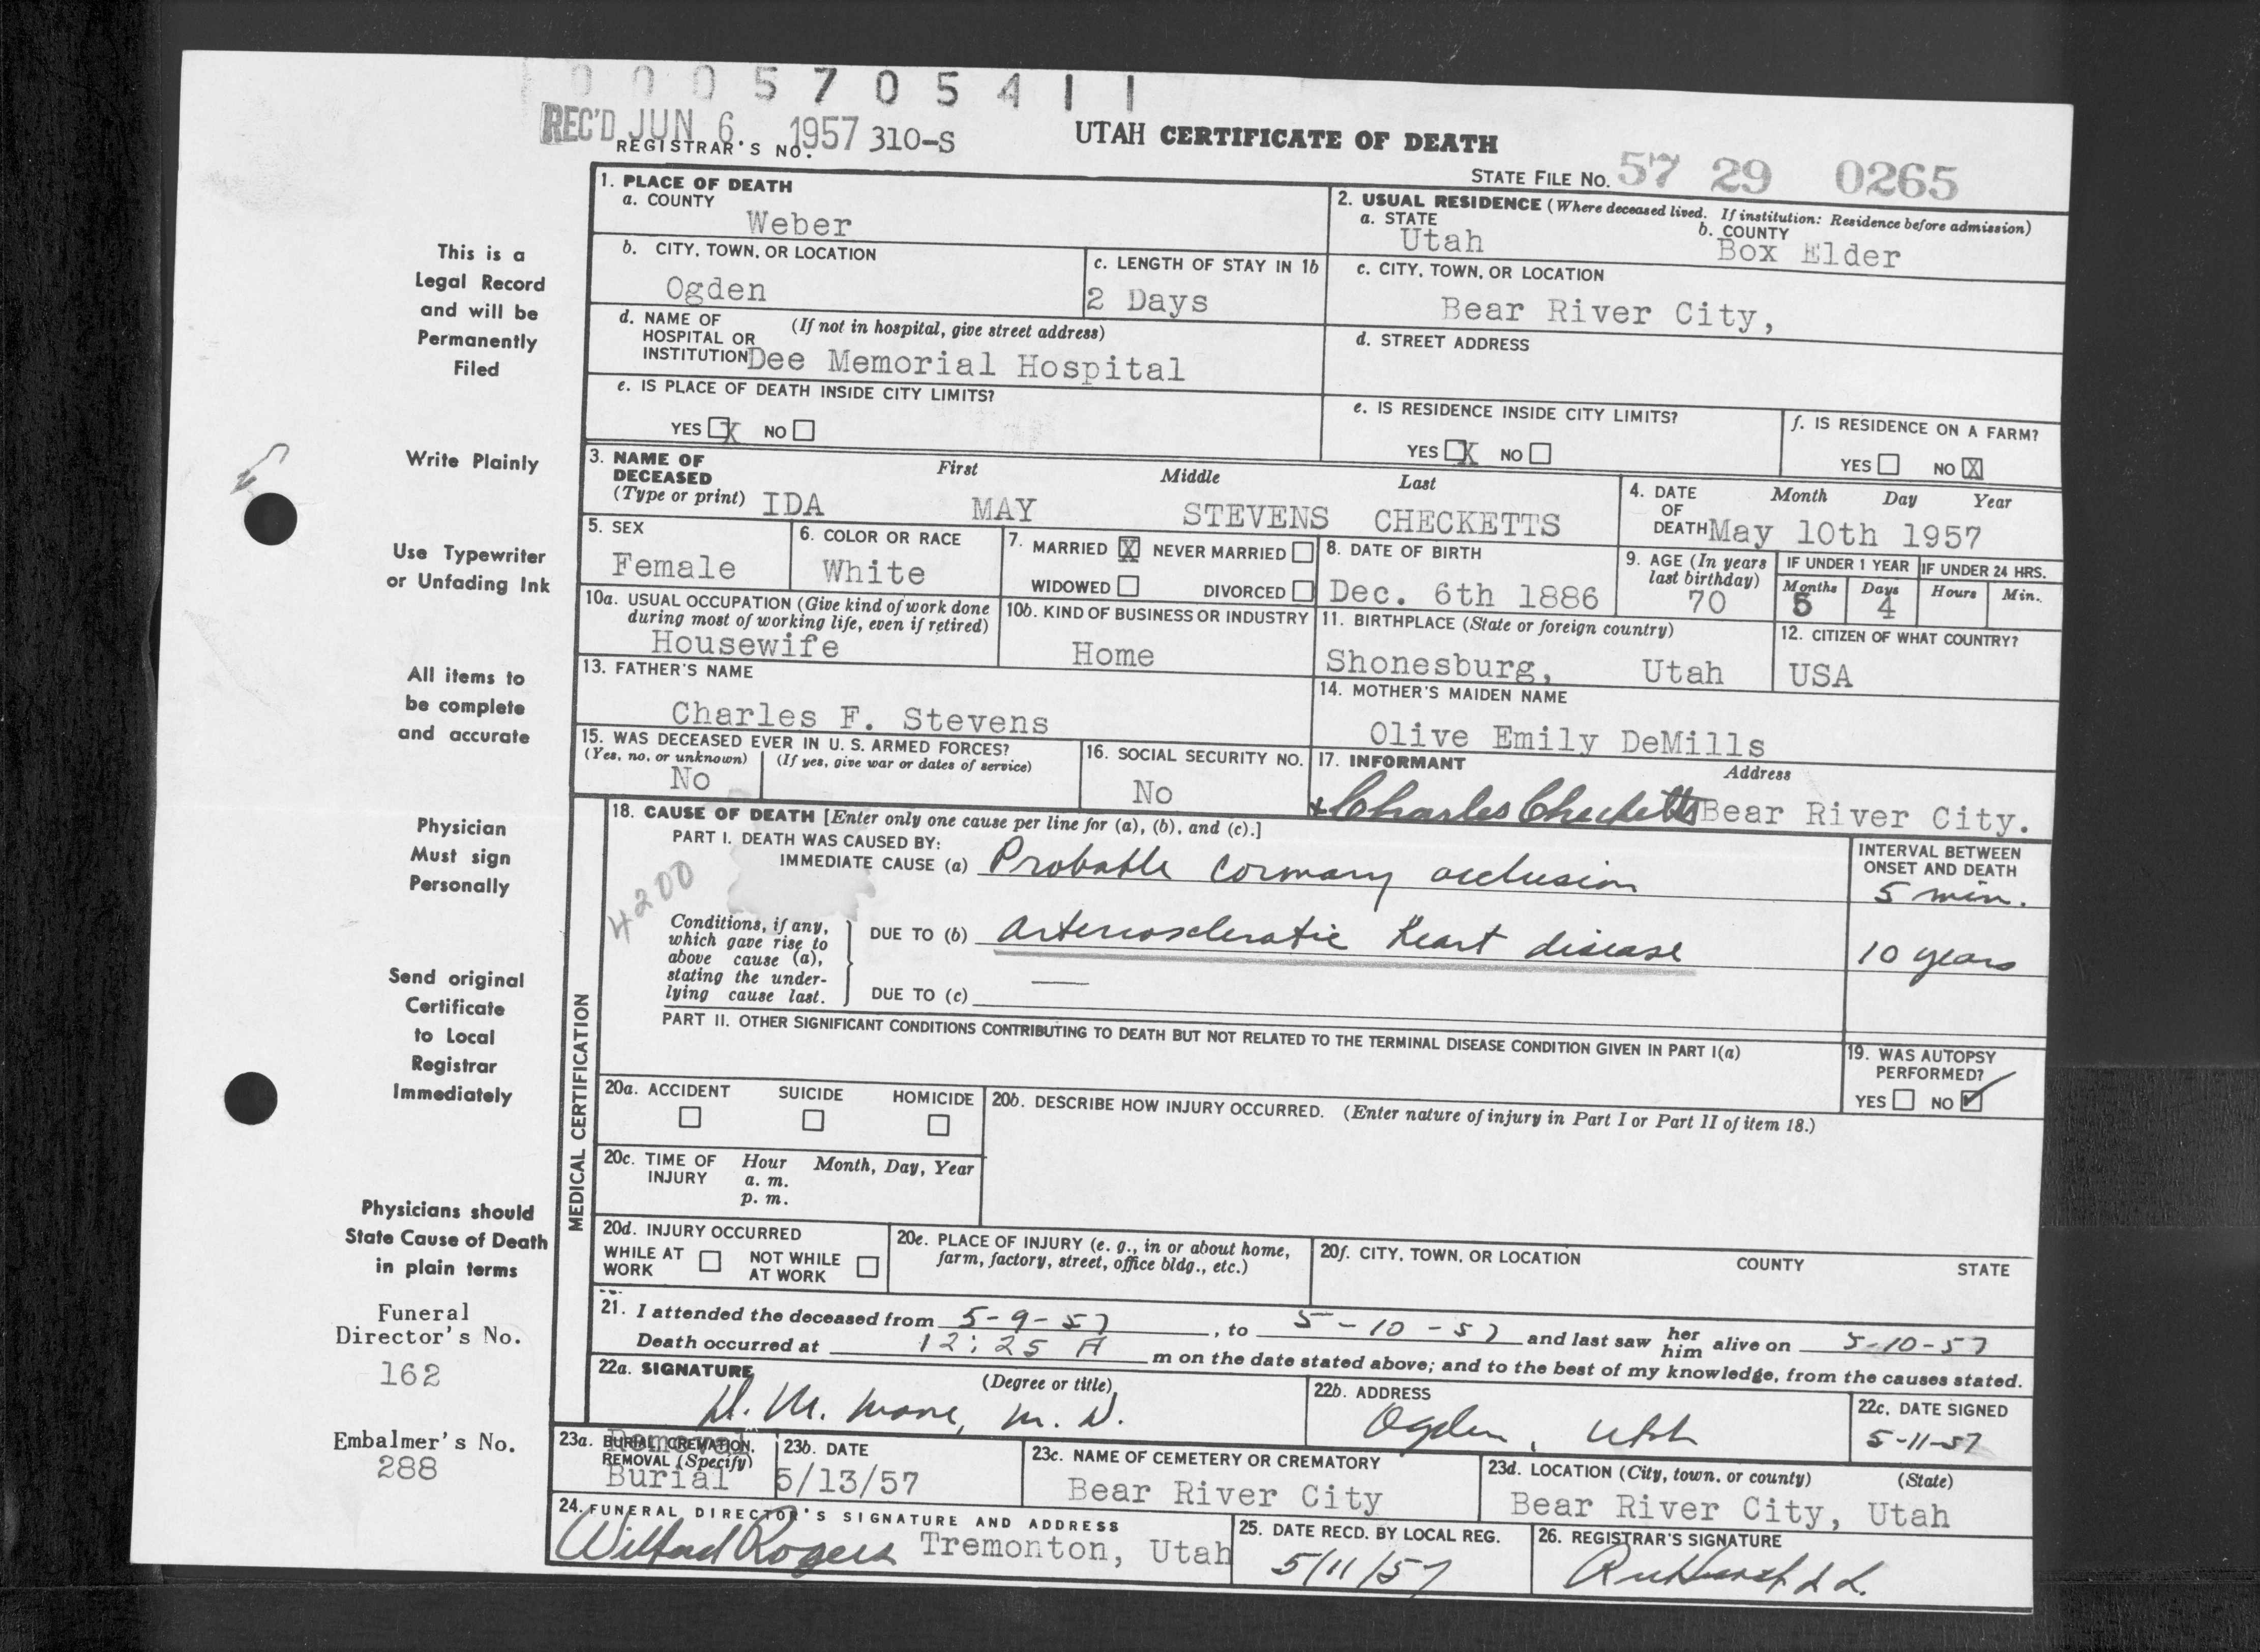 0005705411
REC'D JUN 6 1957
REGISTRAR'S NO. 310-S
UTAH CERTIFICATE OF DEATH
STATE FILE NO. 57 29 0265
This is a
Legal Record
and will be
Permanently
Filed
Write Plainly
Use Typewriter
or Unfading Ink
All items to
be complete
and accurate
Physician
Must sign
Personally
Send original
Certificate
to Local
Registrar
Immediately
Physicians should
State Cause of Death
in plain terms
Funeral
Director's No.
162
Embalmer's No.
288
1. PLACE OF DEATH
a. COUNTY
Weber
2. USUAL RESIDENCE (Where deceased lived. If institution: Residence before admission)
a. STATE
Utah
b. COUNTY
Box Elder
b. CITY, TOWN, OR LOCATION
Ogden
c. LENGTH OF STAY IN 1b
2 Days
c. CITY, TOWN, OR LOCATION
Bear River City,
d. NAME OF HOSPITAL OR INSTITUTION (If not in hospital, give street address)
Dee Memorial Hospital
d. STREET ADDRESS
e. IS PLACE OF DEATH INSIDE CITY LIMITS?
YES X NO
e. IS RESIDENCE INSIDE CITY LIMITS?
YES X NO
f. IS RESIDENCE ON A FARM?
YES NO X
3. NAME OF DECEASED (Type or print) First Middle Last
IDA MAY STEVENS CHECKETTS
4. DATE OF DEATH Month Day Year
May 10th 1957
5. SEX
Female
6. COLOR OR RACE
White
7. MARRIED X NEVER MARRIED
WIDOWED DIVORCED
8. DATE OF BIRTH
Dec. 6th 1886
9. AGE (In years last birthday)
70
IF UNDER 1 YEAR IF UNDER 24 HRS.
Months Days Hours Min.
5 4
10a. USUAL OCCUPATION (Give kind of work done during most of working life, even if retired)
Housewife
10b. KIND OF BUSINESS OR INDUSTRY
Home
11. BIRTHPLACE (State or foreign country)
Shonesburg, Utah
12. CITIZEN OF WHAT COUNTRY?
USA
13. FATHER'S NAME
Charles F. Stevens
14. MOTHER'S MAIDEN NAME
Olive Emily DeMills
15. WAS DECEASED EVER IN U. S. ARMED FORCES?
(Yes, no, or unknown) (If yes, give war or dates of service)
No
16. SOCIAL SECURITY NO.
No
17. INFORMANT Address
x Charles Checketts Bear River City.
MEDICAL CERTIFICATION
18. CAUSE OF DEATH [Enter only one cause per line for (a), (b), and (c).]
PART I. DEATH WAS CAUSED BY:
IMMEDIATE CAUSE (a) Probable coronary occlusion
INTERVAL BETWEEN ONSET AND DEATH
5 min.
4200
Conditions, if any, which gave rise to above cause (a), stating the underlying cause last.
DUE TO (b) arteriosclerotic heart disease
10 years
DUE TO (c) —
PART II. OTHER SIGNIFICANT CONDITIONS CONTRIBUTING TO DEATH BUT NOT RELATED TO THE TERMINAL DISEASE CONDITION GIVEN IN PART I(a)
19. WAS AUTOPSY PERFORMED?
YES NO ✓
20a. ACCIDENT SUICIDE HOMICIDE
20b. DESCRIBE HOW INJURY OCCURRED. (Enter nature of injury in Part I or Part II of item 18.)
20c. TIME OF INJURY Hour Month, Day, Year
a. m.
p. m.
20d. INJURY OCCURRED
WHILE AT WORK NOT WHILE AT WORK
20e. PLACE OF INJURY (e. g., in or about home, farm, factory, street, office bldg., etc.)
20f. CITY, TOWN, OR LOCATION COUNTY STATE
21. I attended the deceased from 5-9-57, to 5-10-57 and last saw her him alive on 5-10-57
Death occurred at 12:25 A m on the date stated above; and to the best of my knowledge, from the causes stated.
22a. SIGNATURE (Degree or title)
M. D.
22b. ADDRESS
Ogden, Utah
22c. DATE SIGNED
5-11-57
23a. BURIAL, CREMATION, REMOVAL (Specify)
Removal
Burial
23b. DATE
5/13/57
23c. NAME OF CEMETERY OR CREMATORY
Bear River City
23d. LOCATION (City, town, or county) (State)
Bear River City, Utah
24. FUNERAL DIRECTOR'S SIGNATURE AND ADDRESS
Wilford Rogers Tremonton, Utah
25. DATE RECD. BY LOCAL REG.
5/11/57
26. REGISTRAR'S SIGNATURE